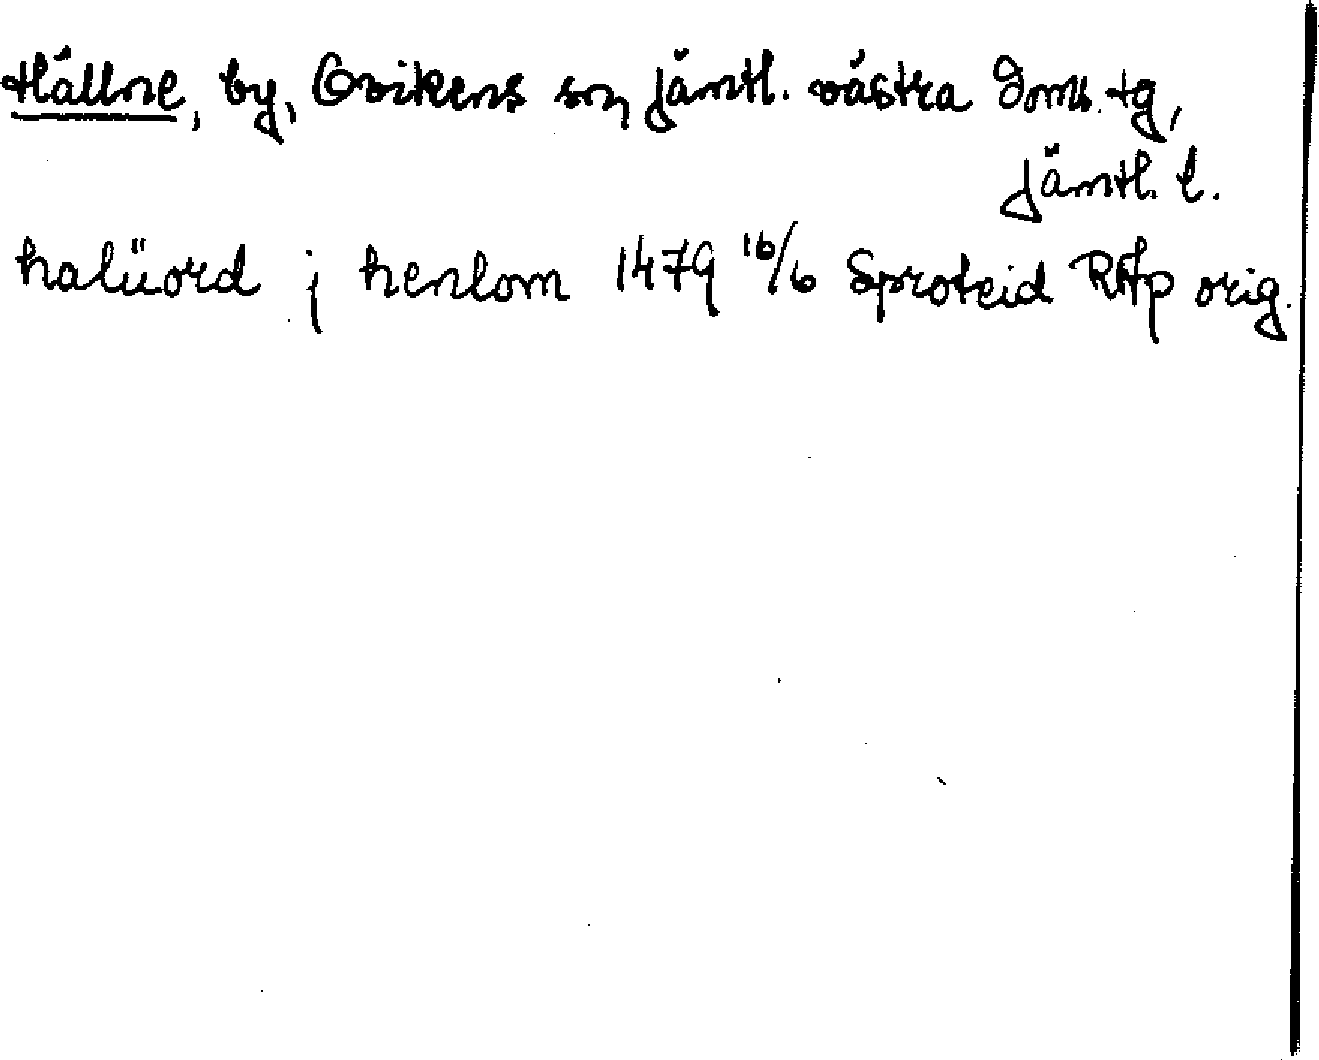 Hällne, by, Ovikens sn, Jämtl. västra doms. tg,
Jämtl. l.
halüord j henlom 1479 16/6 Sproteid RAp orig.